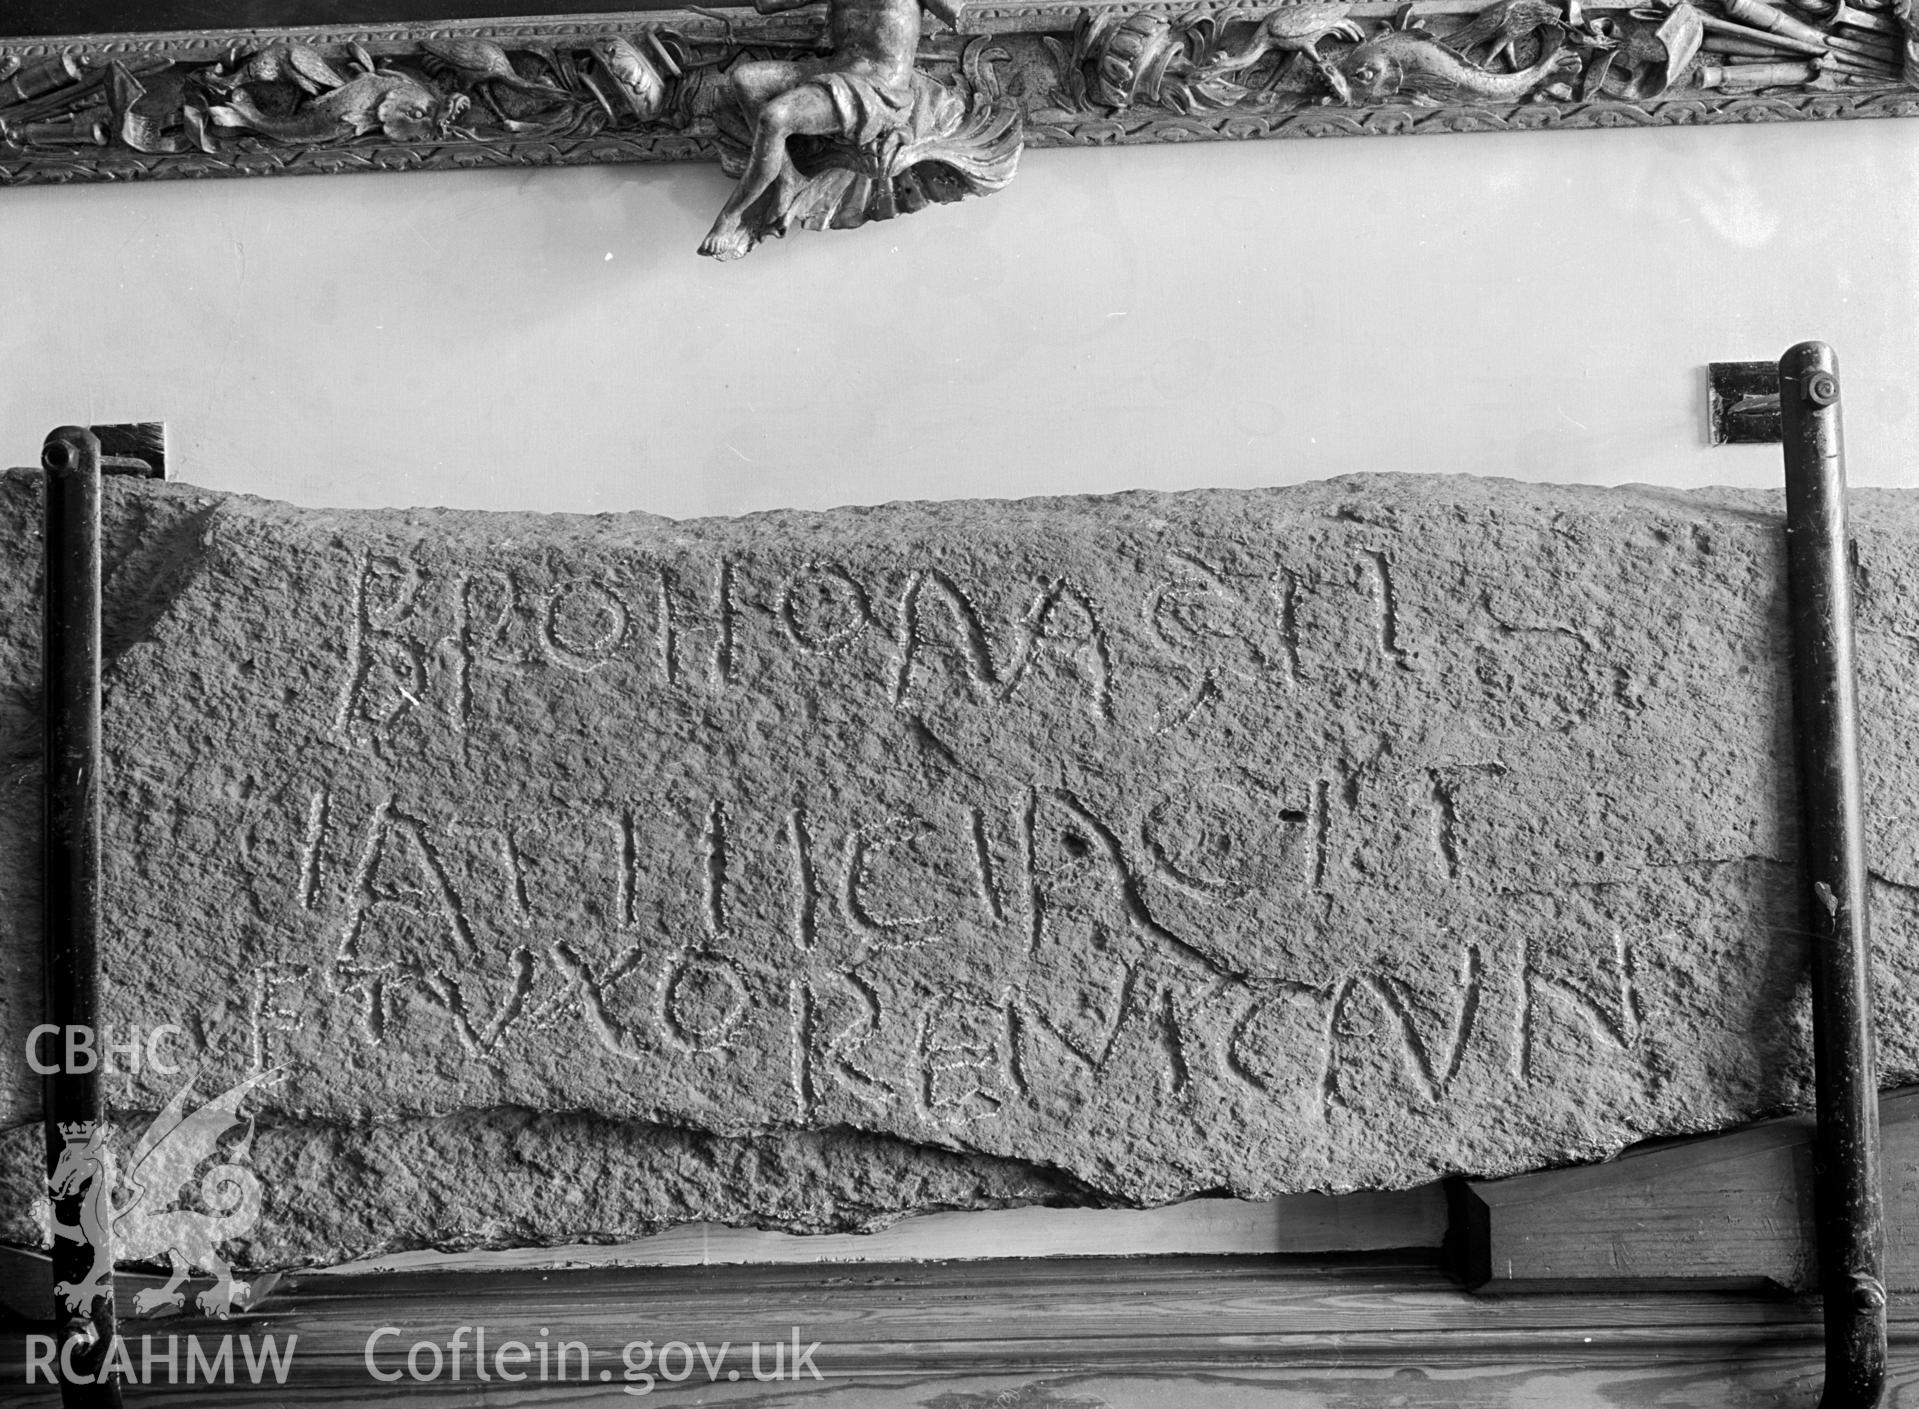 BROHOMAGLI
IATTI IC IACIT
ET VXOR EM CAVN
CBHC
RCAHMW Coflein.gov.uk